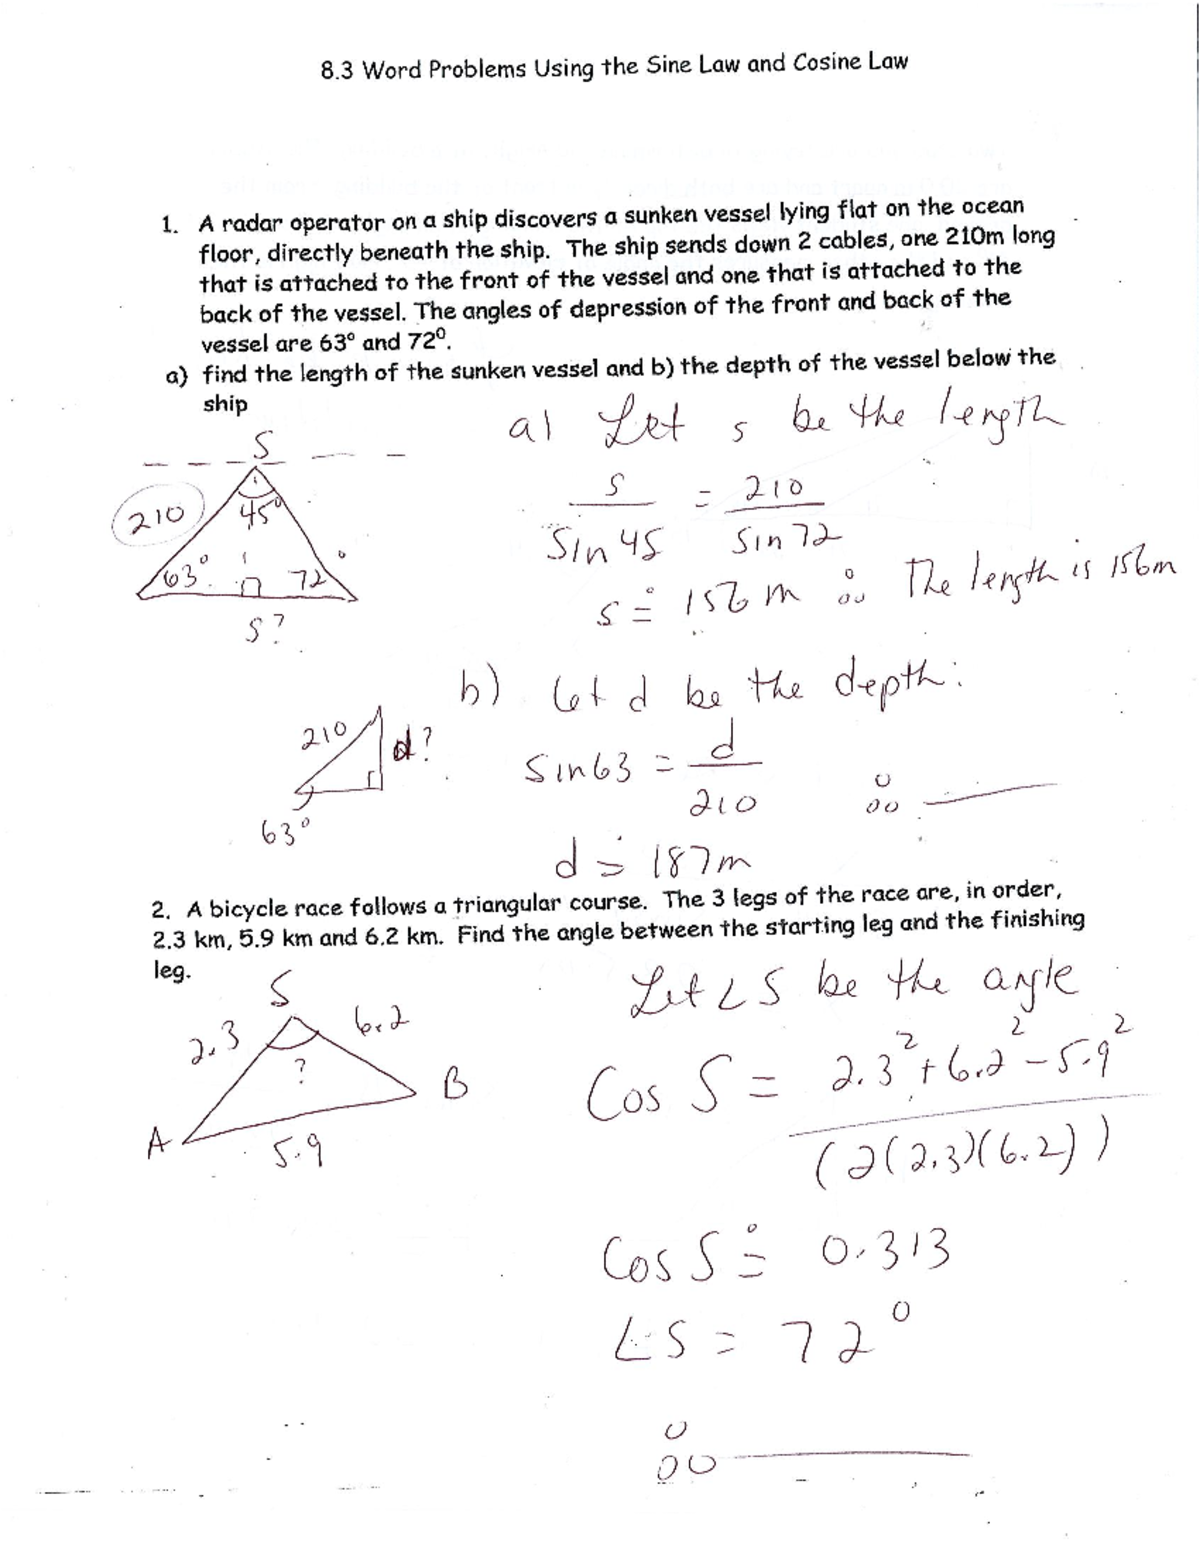 8.3 Word Problems Using the Sine Law and Cosine Law
1. A radar operator on a ship discovers a sunken vessel lying flat on the ocean
floor, directly beneath the ship. The ship sends down 2 cables, one 210m long
that is attached to the front of the vessel and one that is attached to the
back of the vessel. The angles of depression of the front and back of the
vessel are 63° and 72⁰.
a) find the length of the sunken vessel and b) the depth of the vessel below the
ship
a) Let s be the length
S
210
45°
63°
72°
S?
s = 210
Sin 45 Sin 72
s ≐ 156 m ∴ The length is 156m
b) Let d be the depth:
210
d?
63°
Sin63 = d
210
∴
d ≐ 187m
2. A bicycle race follows a triangular course. The 3 legs of the race are, in order,
2.3 km, 5.9 km and 6.2 km. Find the angle between the starting leg and the finishing
leg.
S
2.3
6.2
?
A
B
5.9
Let ∠S be the angle
Cos S = 2.3² + 6.2² - 5.9²
(2(2.3)(6.2))
Cos S ≐ 0.313
∠S = 72°
∴